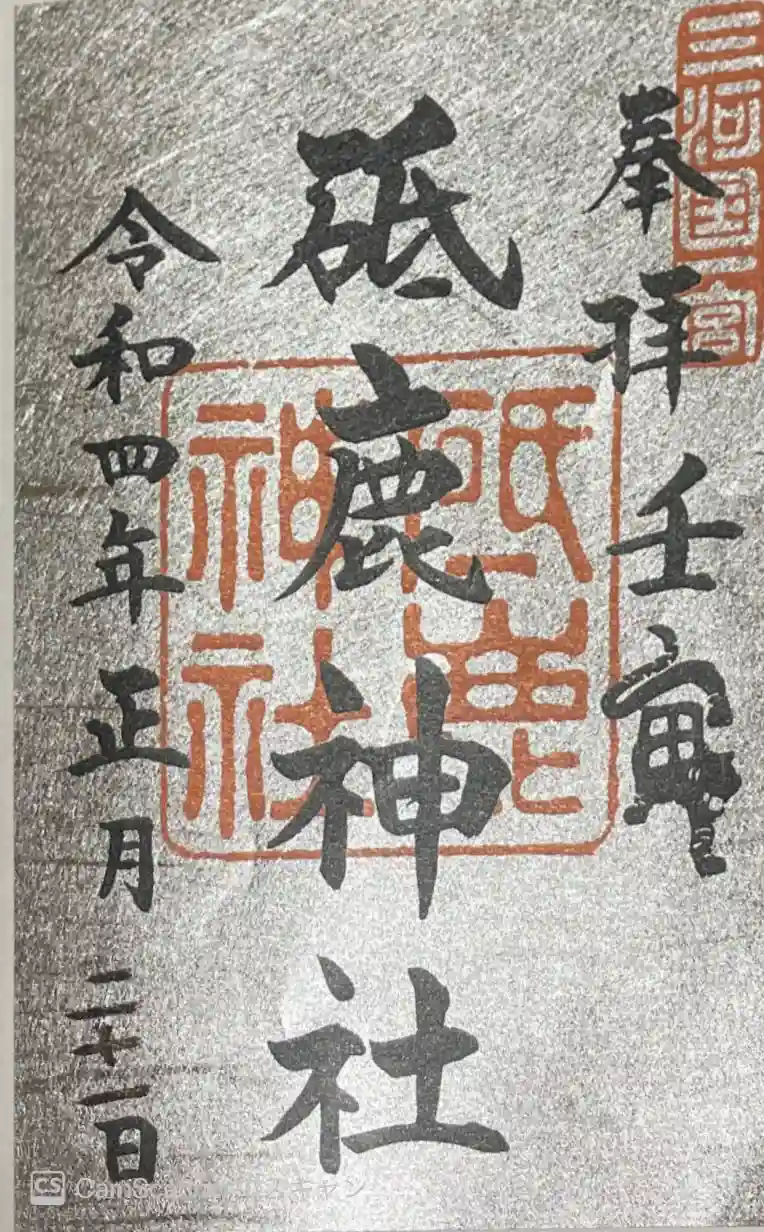 三河国一宮
奉拝 壬寅
砥鹿神社
砥鹿
神社
令和四年正月二十一日
CS CamSc
キャン